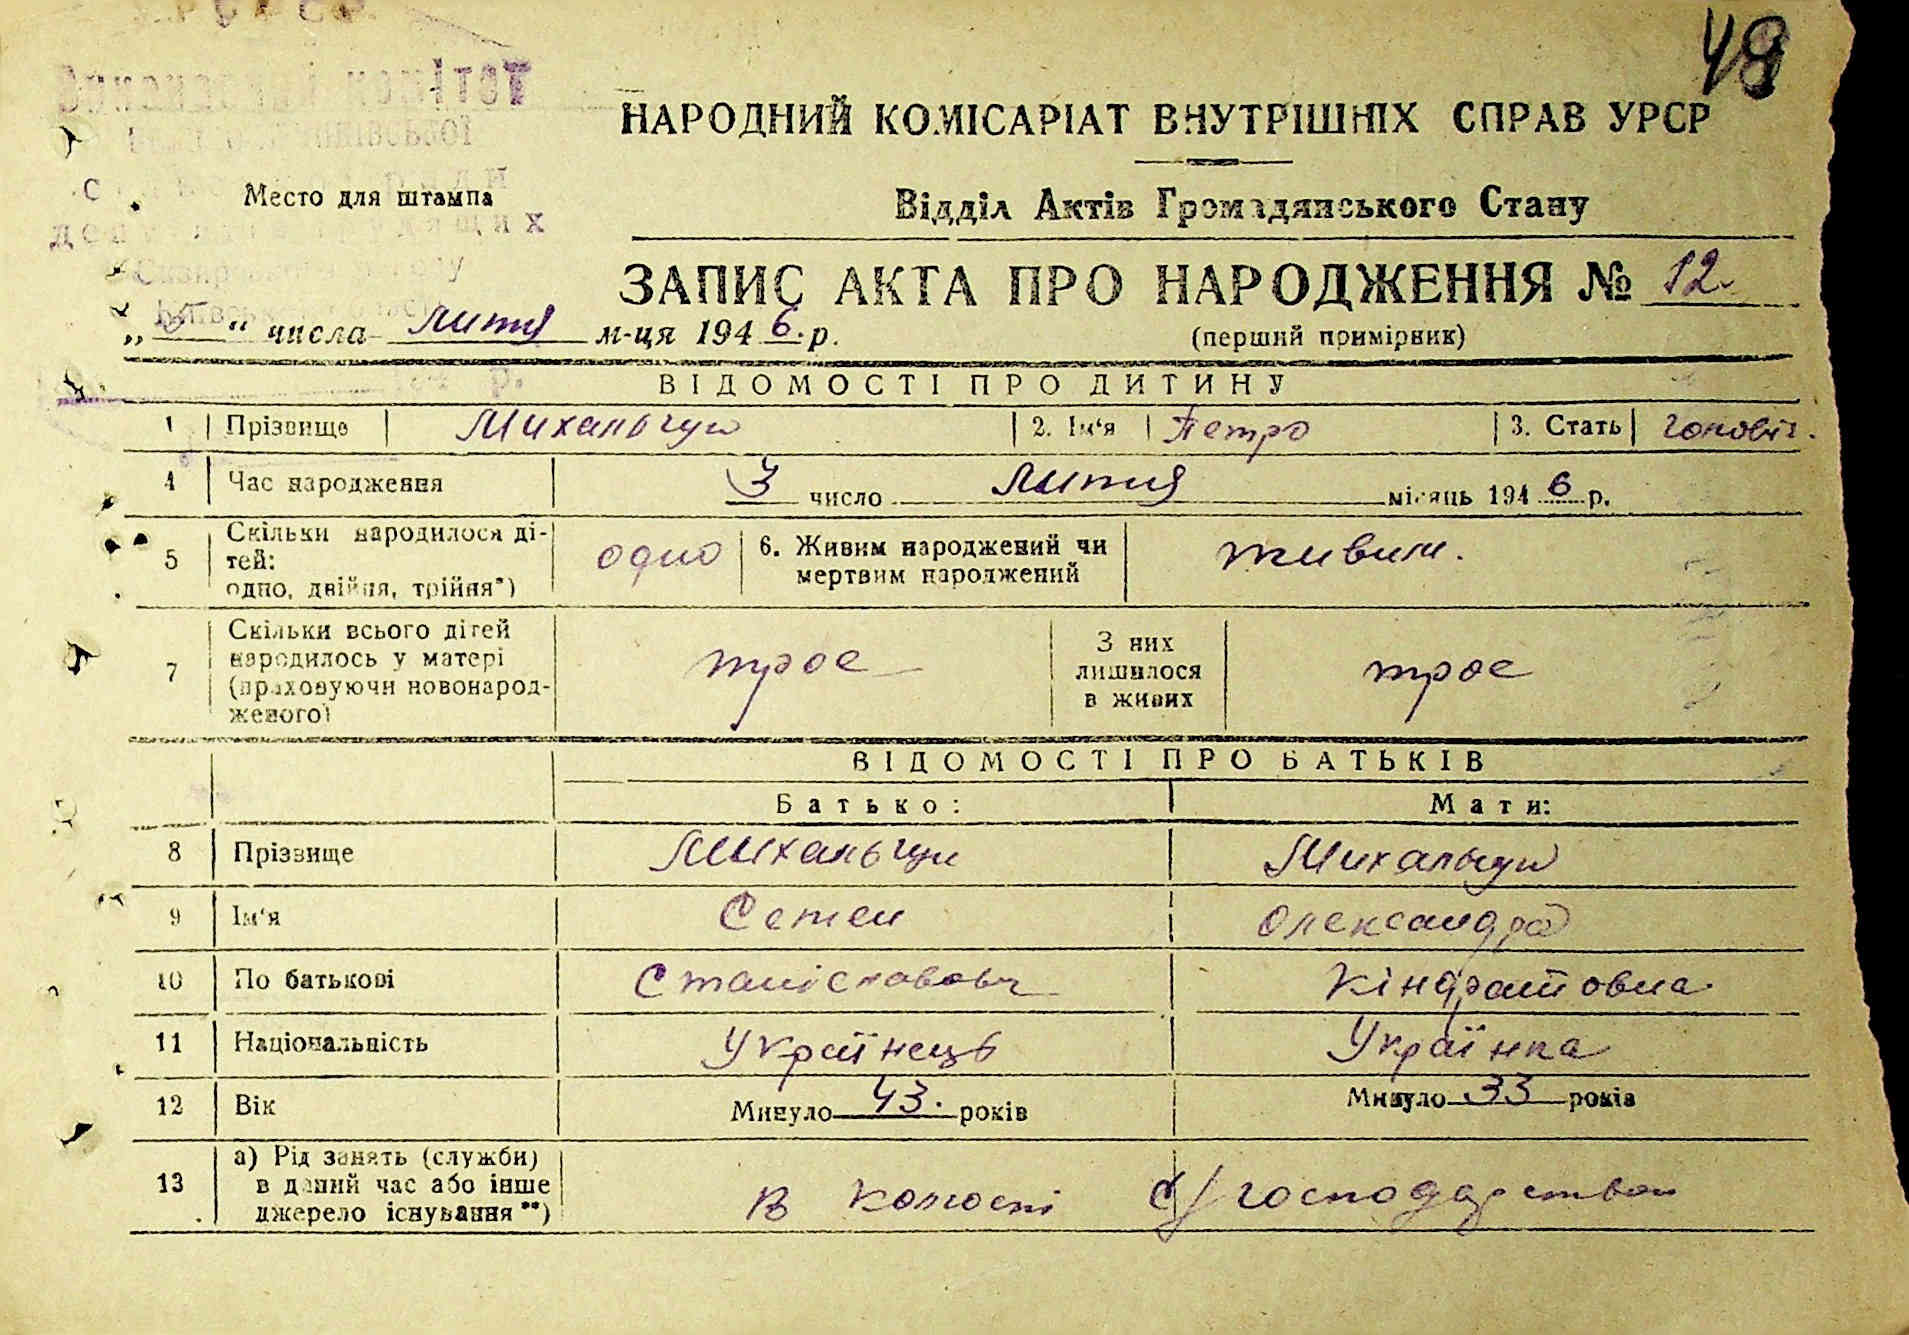 49
НАРОДНИЙ КОМІСАРІАТ ВНУТРІШНІХ СПРАВ УРСР
Место для штампа
Відділ Актів Громадянського Стану
ЗАПИС АКТА ПРО НАРОДЖЕННЯ № 12
„ “ числа лютня м-ця 1946. р.
(перший примірник)
ВІДОМОСТІ ПРО ДИТИНУ
1 Прізвище Михальчук 2. Ім'я Петро 3. Стать чоловіч.
4 Час народження 3 число лютня місяць 1946 р.
5 Скільки народилося ді-
тей:
одно, двійня, трійня*) одно 6. Живим народжений чи
мертвим народжений живим.
7 Скільки всього дітей
народилось у матері
(враховуючи новонарод-
женого) троє З них
лишилося
в живих троє
ВІДОМОСТІ ПРО БАТЬКІВ
Батько: Мати:
8 Прізвище Михальчук Михальчук
9 Ім'я Семен Олександра
10 По батькові Станіславович Кіндратовна
11 Національність Українець Українка
12 Вік Минуло 43. років Минуло 33 років
13 а) Рід занять (служби)
в даний час або інше
джерело існування**) в колгоспі с/господарством